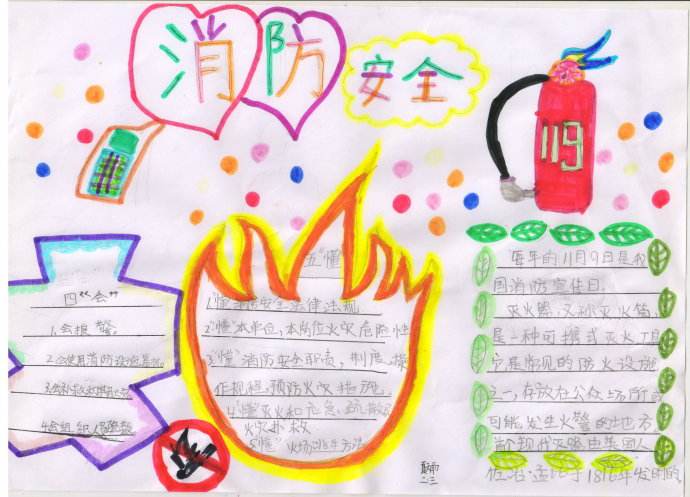 消防
安全
119
四“会”
1.会报警。
2.会使用消防设施器材。
3.会扑救初期火灾
4.会组织人员疏散
五“懂”
1“懂”消防安全法律法规
2“懂”本单位、本岗位火灾危险性
3“懂”消防安全职责、制度、操
作规程、预防火灾措施。
4“懂”灭火和应急、疏散
火灾扑救
5“懂”火场逃生方法
每年的11月9日是我
国消防宣传日。
灭火器,又称灭火筒,
是一种可携式灭火工具
它是常见的防火设施
之一,存放在公众场所
可能发生火警的地方
现代灭 由英国人
佐治·孟比于1816年发明的
二三